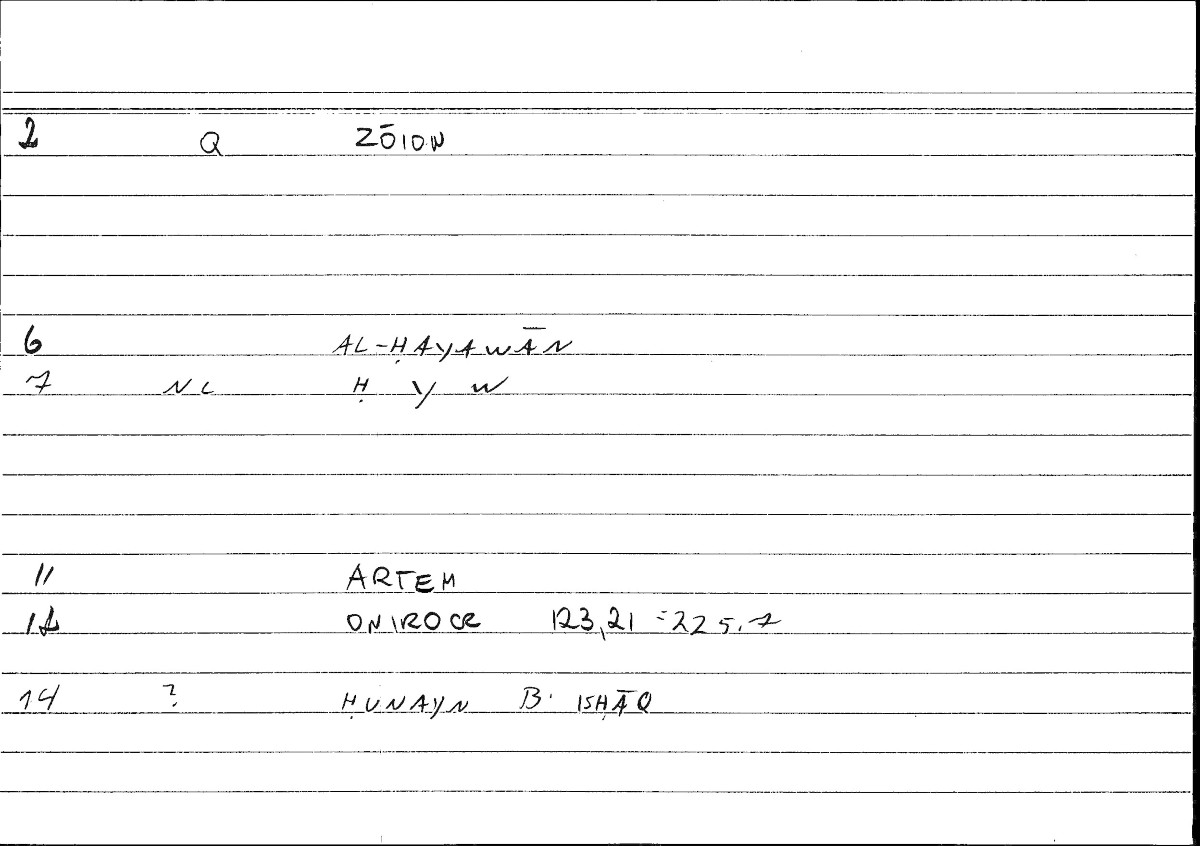 2 Q ZŌION
6 AL-ḤAYAWĀN
7 NL Ḥ Y W
11 ARTEM
12 ONIROCR 123,21 = 225.7
14 ? ḤUNAYN B. ISḤĀQ